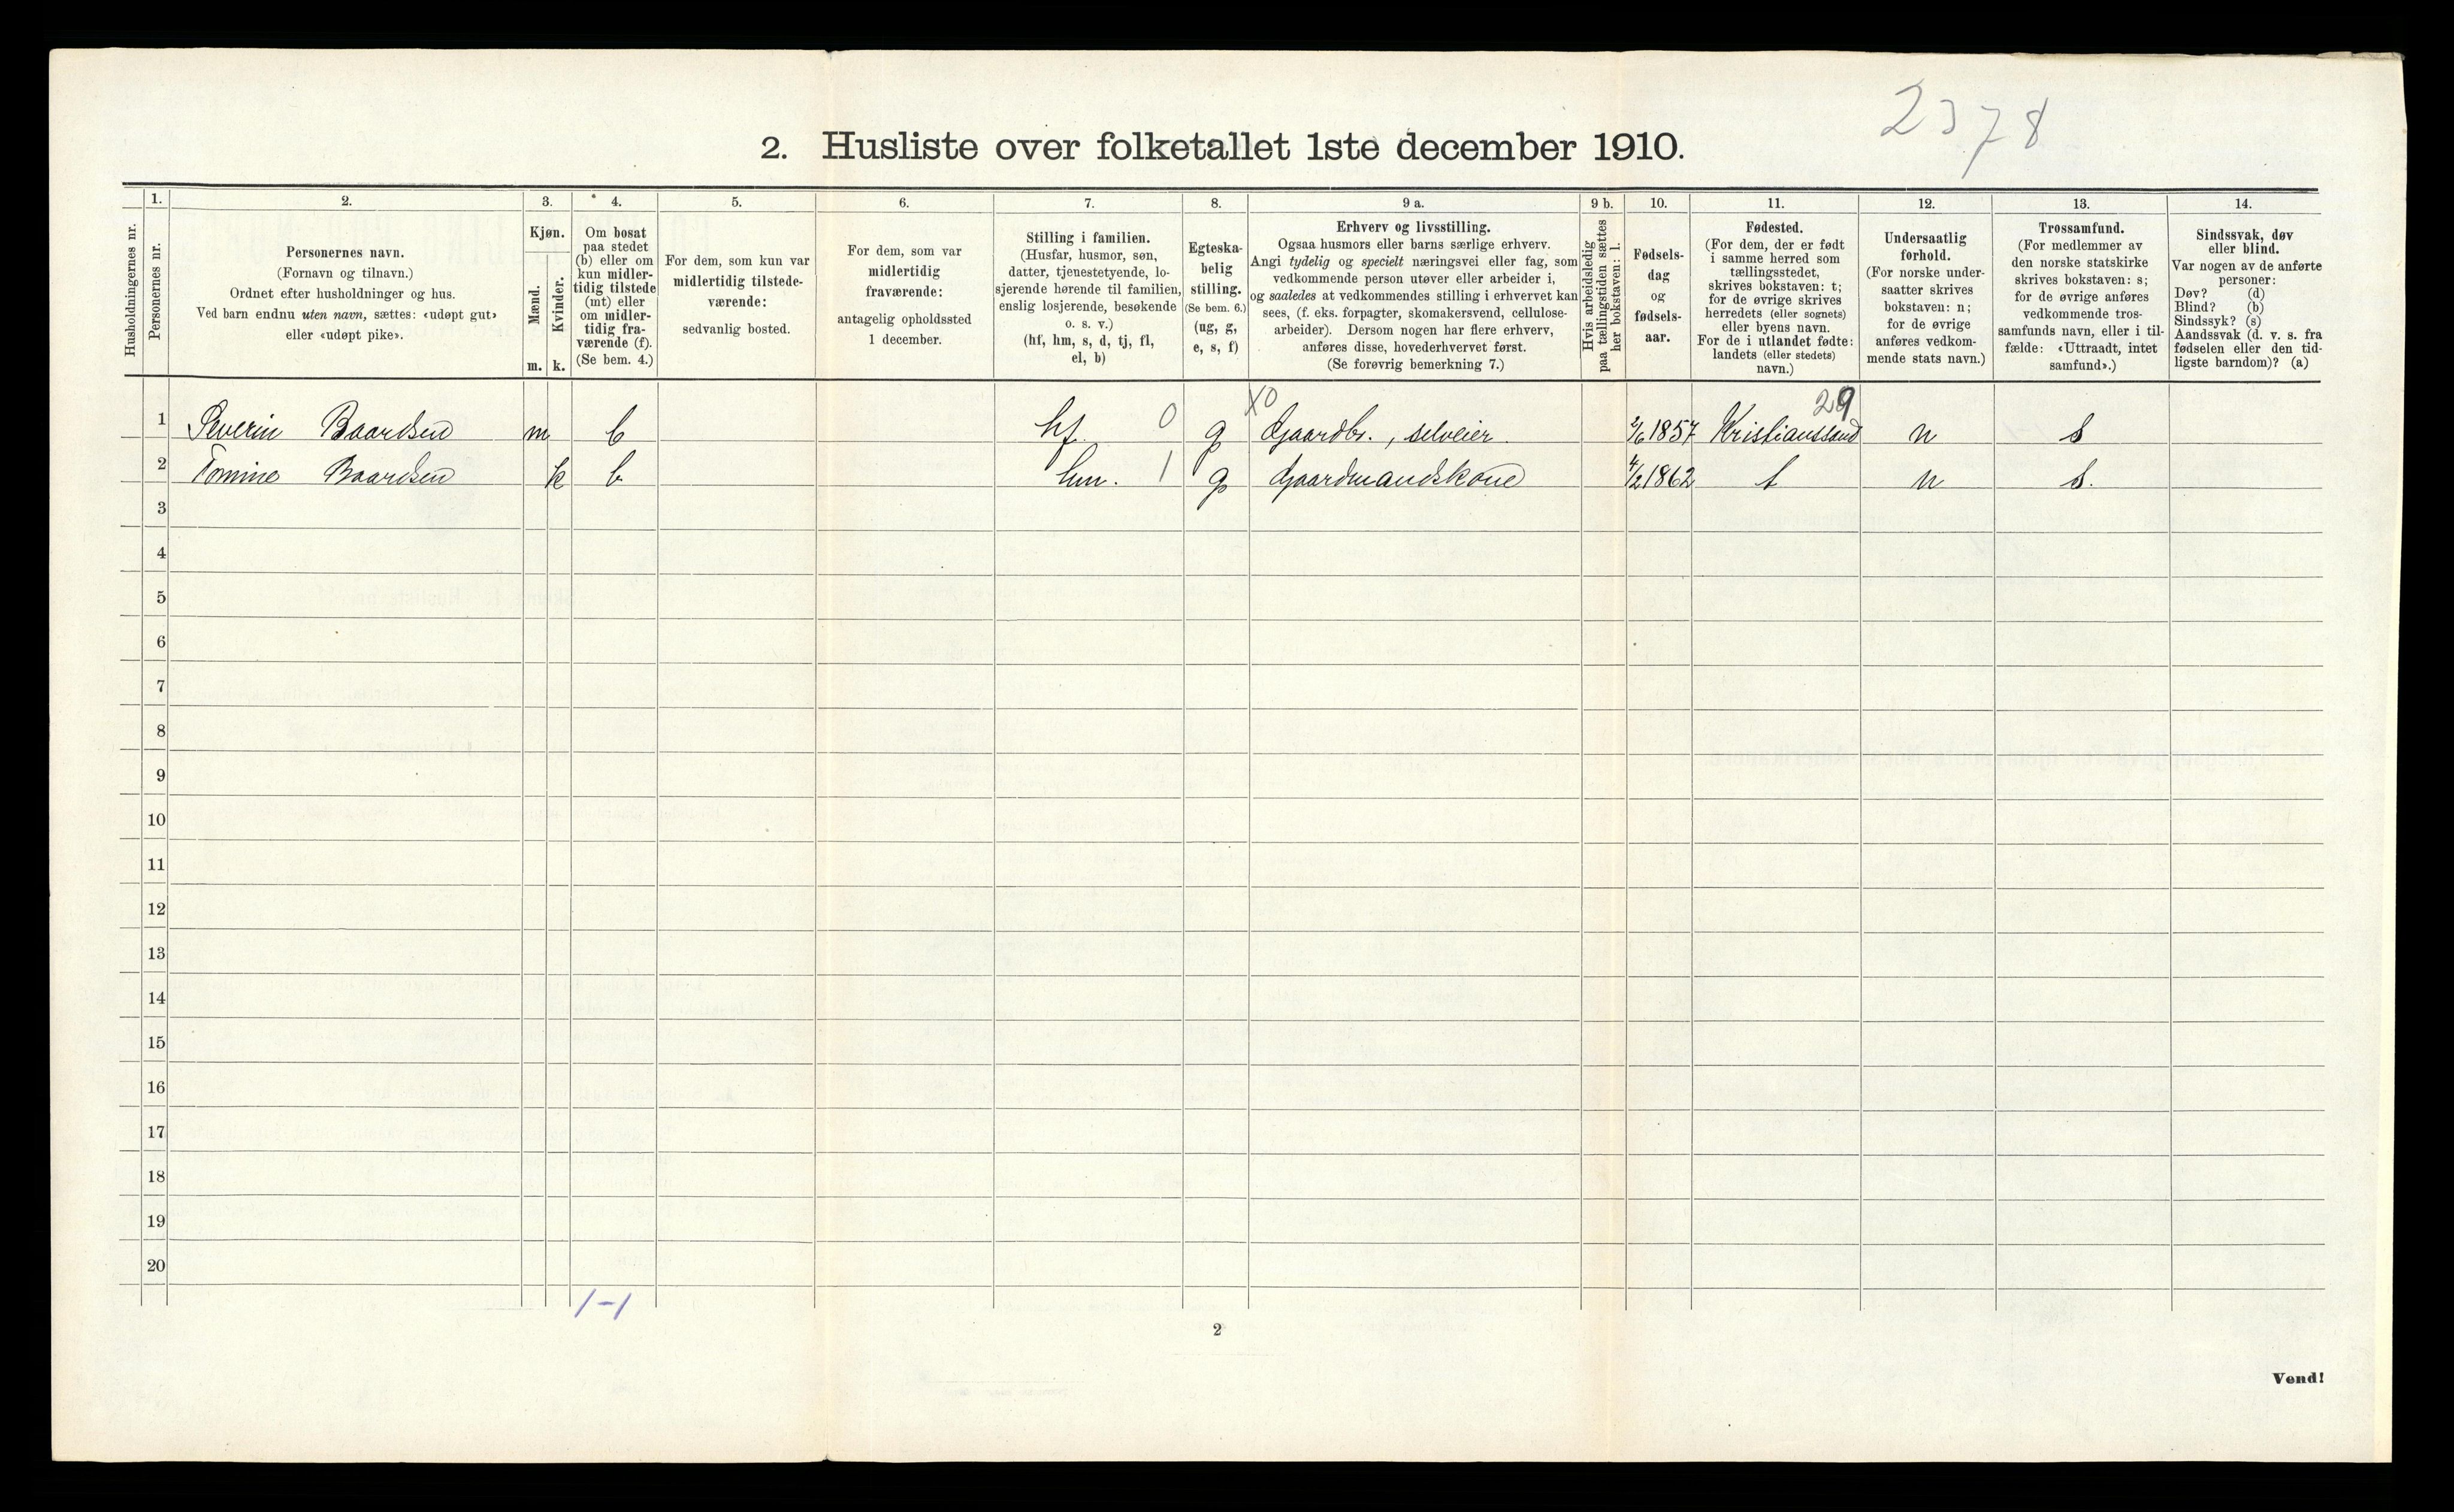 2378
2. Husliste over folketallet 1ste december 1910.
Husholdningernes nr.
1. Personernes nr.
2. Personernes navn.
(Fornavn og tilnavn.)
Ordnet efter husholdninger og hus.
Ved barn endnu uten navn, sættes: «udøpt gut»
eller «udøpt pike».
3. Kjøn.
Mænd. Kvinder.
m. k.
4. Om bosat
paa stedet
(b) eller om
kun midler-
tidig tilstede
(mt) eller
om midler-
tidig fra-
værende (f).
(Se bem. 4.)
5. For dem, som kun var
midlertidig tilstede-
værende:
sedvanlig bosted.
6. For dem, som var
midlertidig
fraværende:
antagelig opholdssted
1 december.
7. Stilling i familien.
(Husfar, husmor, søn,
datter, tjenestetyende, lo-
sjerende hørende til familien,
enslig losjerende, besøkende
o. s. v.)
(hf, hm, s, d, tj, fl,
el, b)
8. Egteska-
belig
stilling.
(Se bem. 6.)
(ug, g,
e, s, f)
9 a. Erhverv og livsstilling.
Ogsaa husmors eller barns særlige erhverv.
Angi tydelig og specielt næringsvei eller fag, som
vedkommende person utøver eller arbeider i,
og saaledes at vedkommendes stilling i erhvervet kan
sees, (f. eks. forpagter, skomakersvend, cellulose-
arbeider). Dersom nogen har flere erhverv,
anføres disse, hovederhvervet først.
(Se forøvrig bemerkning 7.)
9 b. Hvis arbeidsledig
paa tællingstiden sættes
her bokstaven: l.
10. Fødsels-
dag
og
fødsels-
aar.
11. Fødested.
(For dem, der er født
i samme herred som
tællingsstedet,
skrives bokstaven: t;
for de øvrige skrives
herredets (eller sognets)
eller byens navn.
For de i utlandet fødte:
landets (eller stedets)
navn.)
12. Undersaatlig
forhold.
(For norske under-
saatter skrives
bokstaven: n;
for de øvrige
anføres vedkom-
mende stats navn.)
13. Trossamfund.
(For medlemmer av
den norske statskirke
skrives bokstaven: s;
for de øvrige anføres
vedkommende tros-
samfunds navn, eller i til-
fælde: «Uttraadt, intet
samfund».)
14. Sindssvak, døv
eller blind.
Var nogen av de anførte
personer:
Døv? (d)
Blind? (b)
Sindssyk? (s)
Aandssvak (d. v. s. fra
fødselen eller den tid-
ligste barndom)? (a)
X0 29
1 Severin Baardsen m b hf 0 g Gaardbr., selveier 2/6 1857 Kristianssand n s
2 Tomine Baardsen k b hm. 1 g Gaardmandskone 4/2 1862 t n s.
3
4
5
6
7
8
9
10
11
12
13
14
15
16
17
18
19
20
1-1
2
Vend!